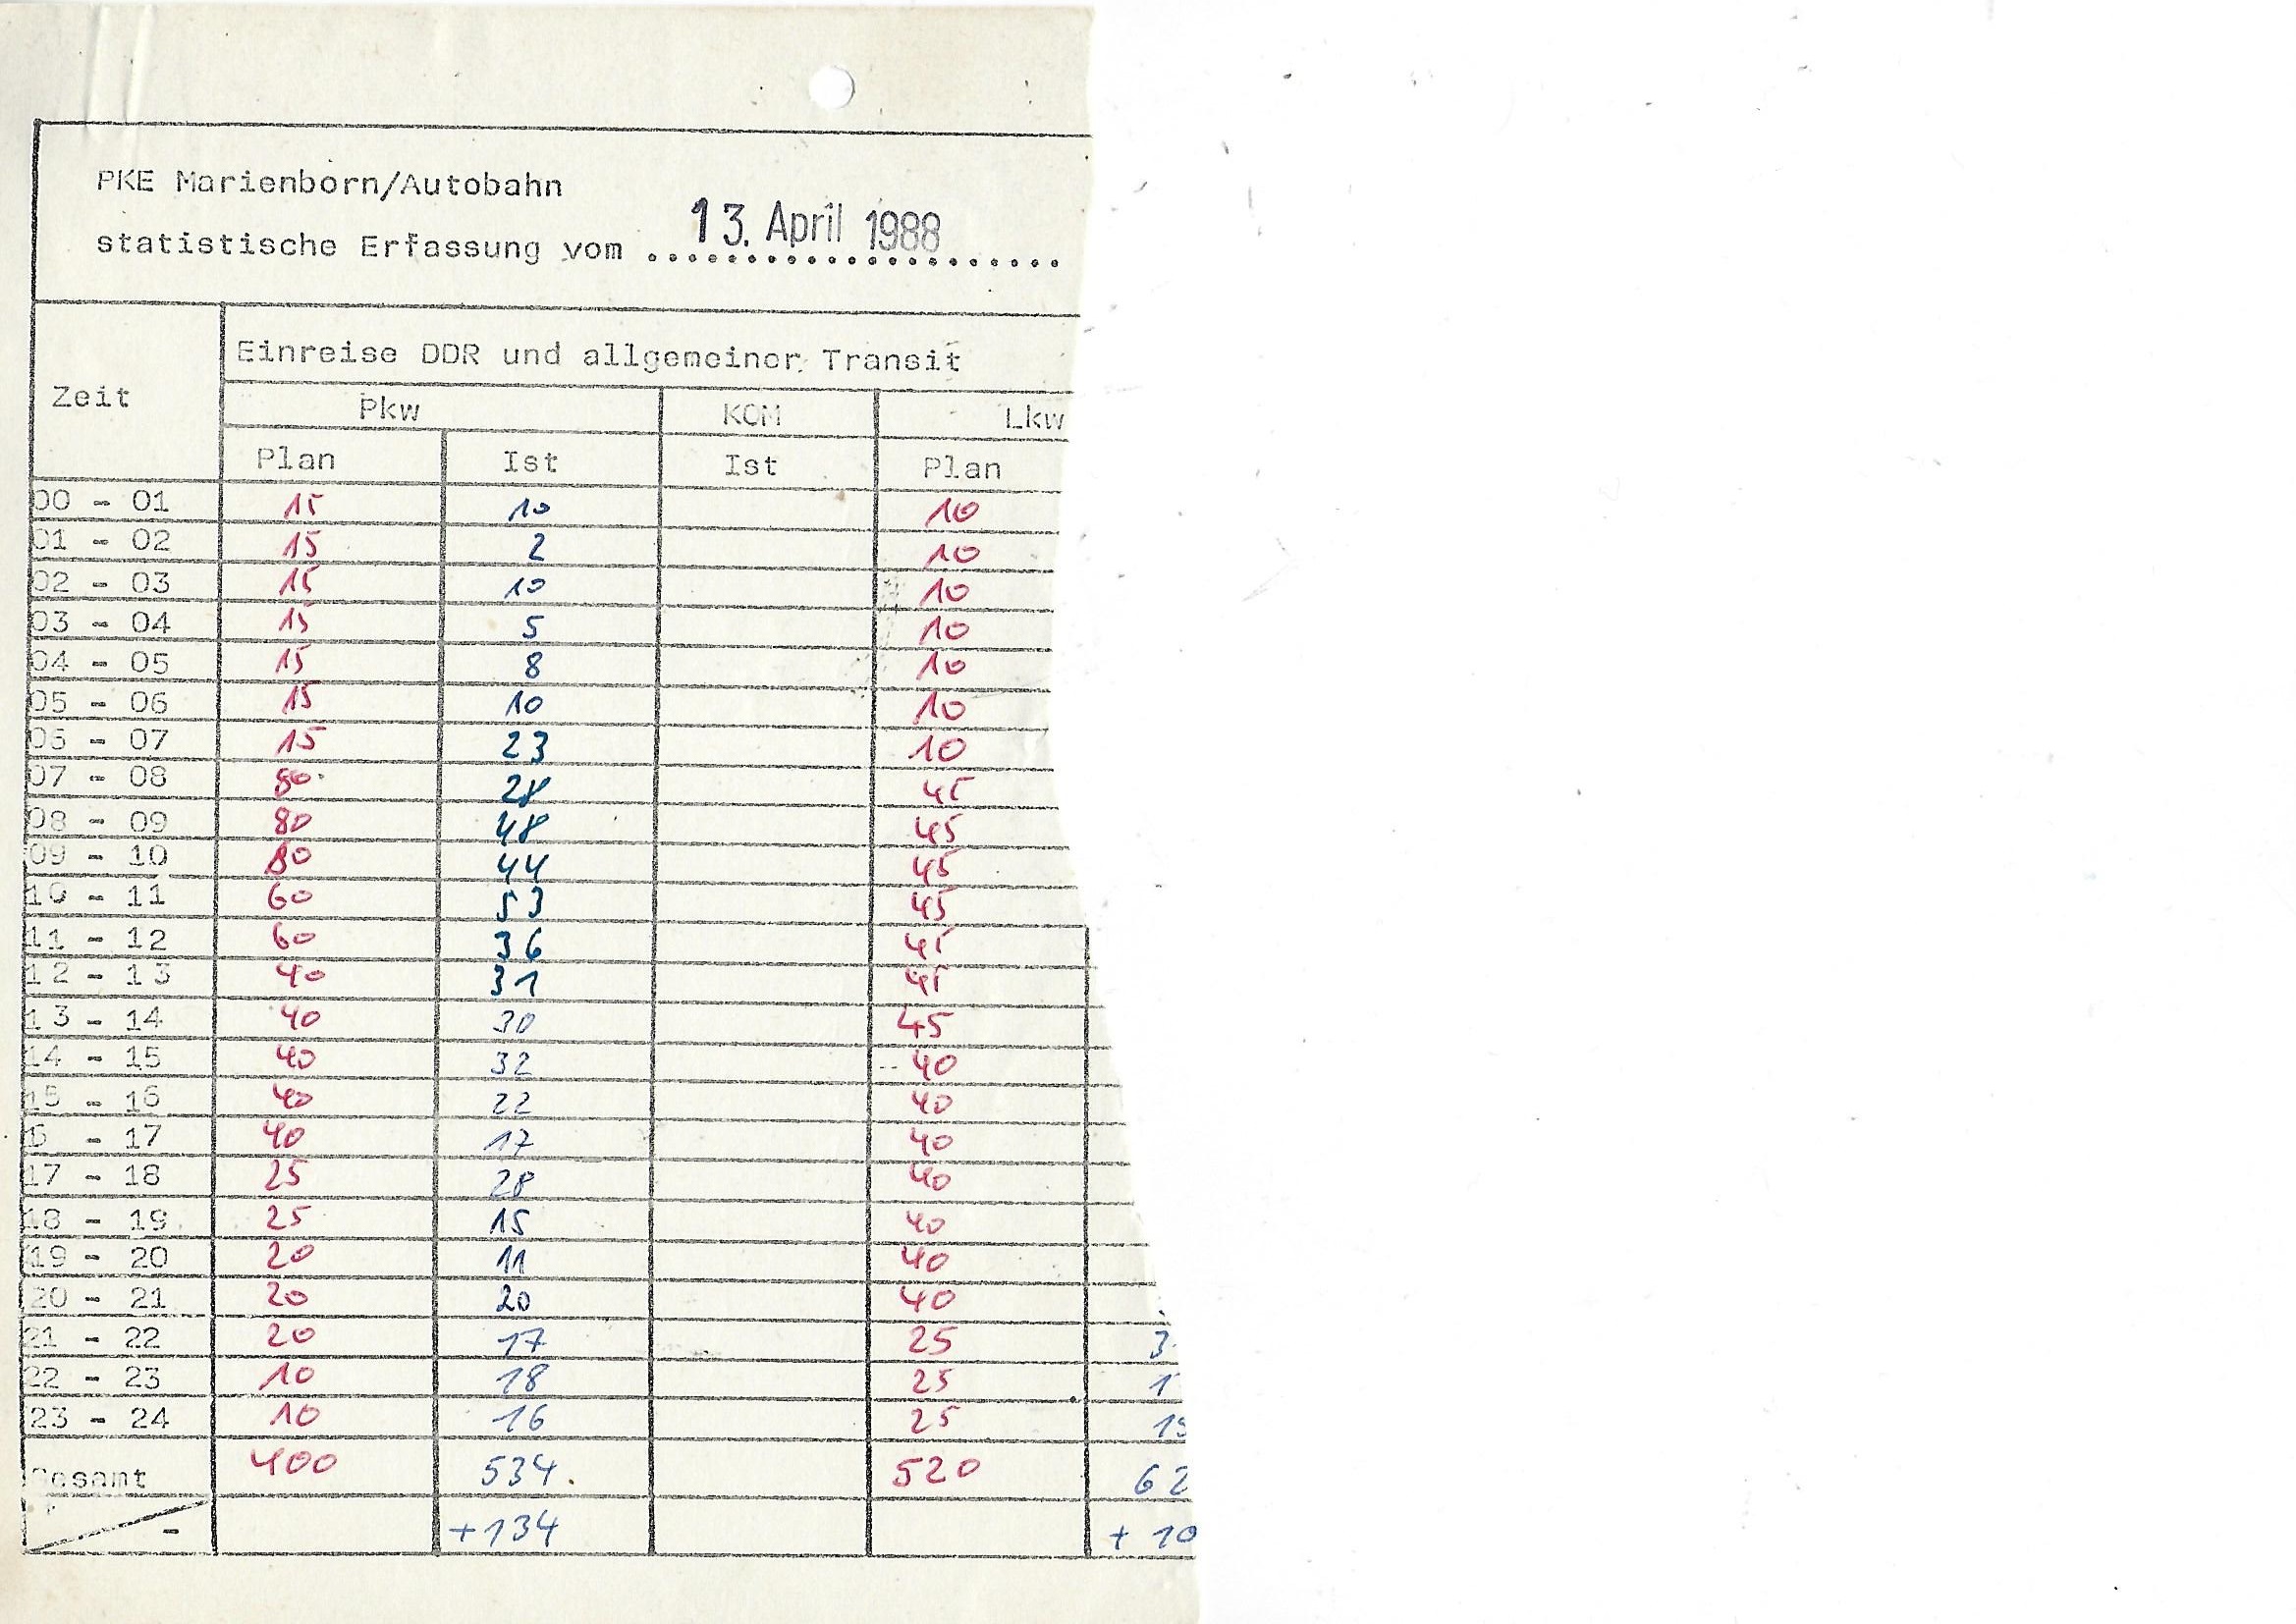 PKE Marienborn/Autobahn
statistische Erfassung vom 13. April 1988
Einreise DDR und allgemeiner Transit
Zeit
Pkw KOM Lkw
Plan Ist Ist Plan
00 - 01 15 10 10
01 - 02 15 2 10
02 - 03 15 10 10
03 - 04 15 5 10
04 - 05 15 8 10
05 - 06 15 10 10
06 - 07 15 23 10
07 - 08 80 28 45
08 - 09 80 48 45
09 - 10 80 44 45
10 - 11 60 53 45
11 - 12 60 36 45
12 - 13 40 31 45
13 - 14 40 30 45
14 - 15 40 32 40
15 - 16 40 22 40
6 - 17 40 17 40
17 - 18 25 28 40
18 - 19 25 15 40
19 - 20 20 11 40
20 - 21 20 20 40
21 - 22 20 17 25 3
22 - 23 10 18 25 1
23 - 24 10 16 25
Gesamt 400 534 520 62
- +134 + 10